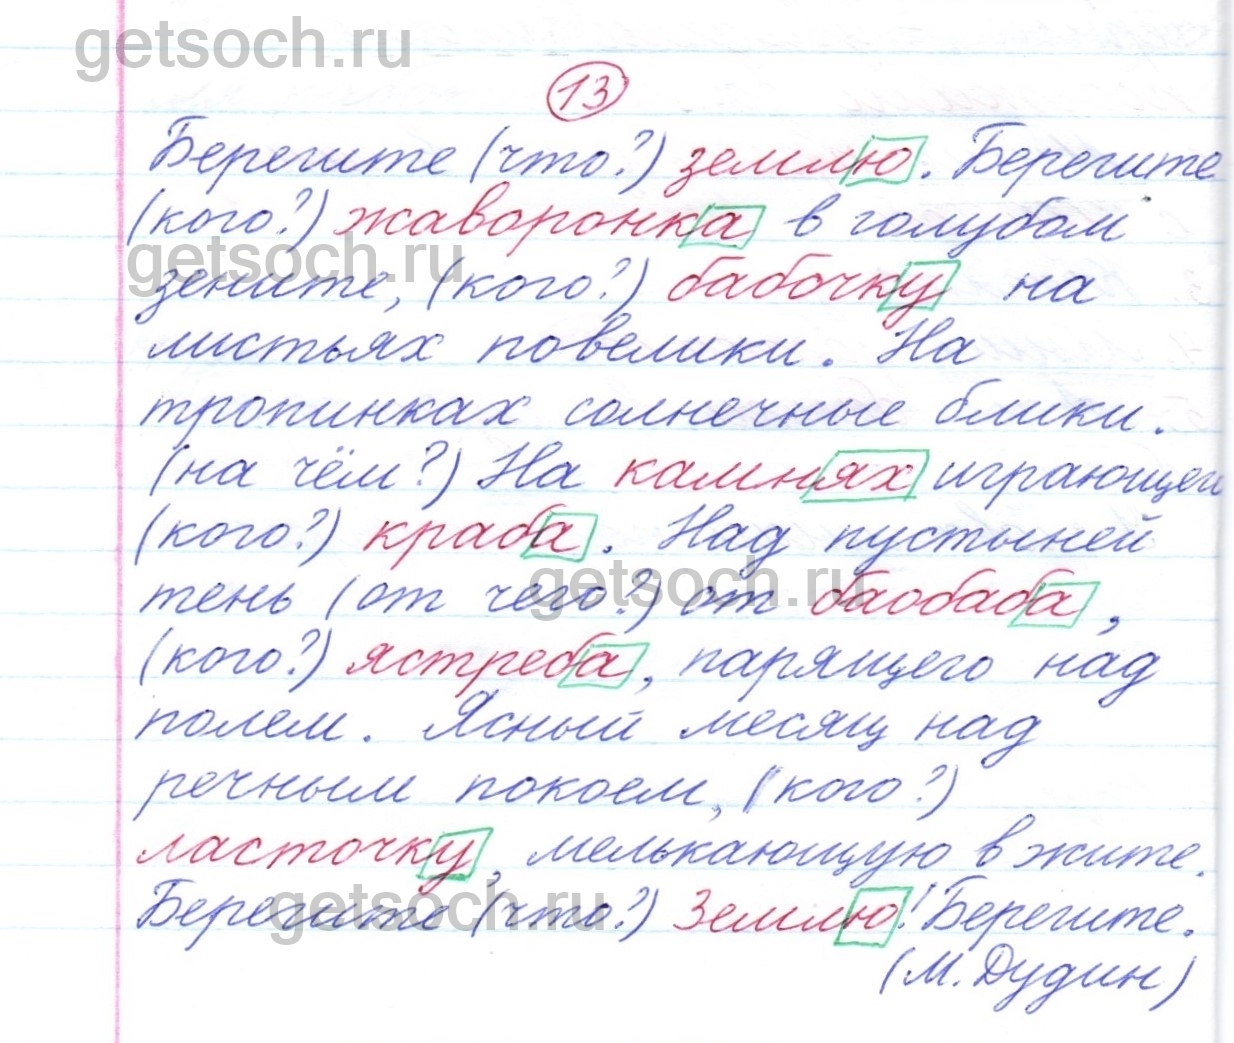 getsoch.ru
13
Берегите (что?) землю. Берегите
(кого?) жаворонка в голубом
getsoch.ru
зените, (кого?) бабочку на
листьях повелики. На
тропинках солнечные блики.
(на чём?) На камнях играющего
(кого?) краба. Над пустыней
getsoch.ru
тень (от чего?) от баобаба,
(кого?) ястреба, парящего над
полем. Ясный месяц над
речным покоем, (кого?)
ласточку, мелькающую в жите.
getsoch.ru
Берегите (что?) Землю! Берегите.
(М. Дудин)